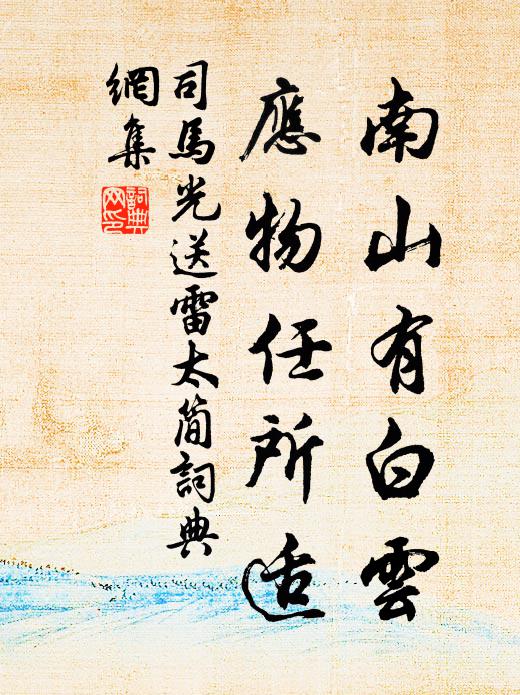 南山有白雲
應物任所适
司馬光送雷太簡詞典
網集
詞典網印